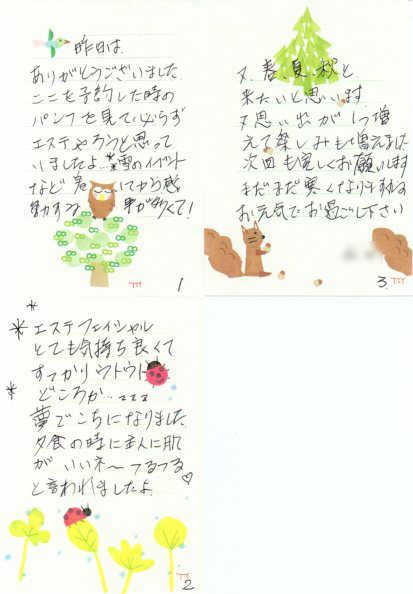 昨日は、
ありがとうございました。
ここを予約した時の
パンフを見ていらず
エステやろうと思って
いましたよ…*雪のイベント
など着いてから感
動する事が多くて!
1
エステフェイシャル
とても気持ち良くて
すっかりウトウト
どころか…zzz
夢でこちになりました
夕食の時に主人に肌
がいいネ〜つるつる
と言われましたよ♡
2
又、春、夏、秋と、
来たいと思います
又思い出が1つ増
えて楽しみも増えました
次回も宜しくお願いします
まだまだ寒くなりますが
お元気でお過ごし下さい
3.